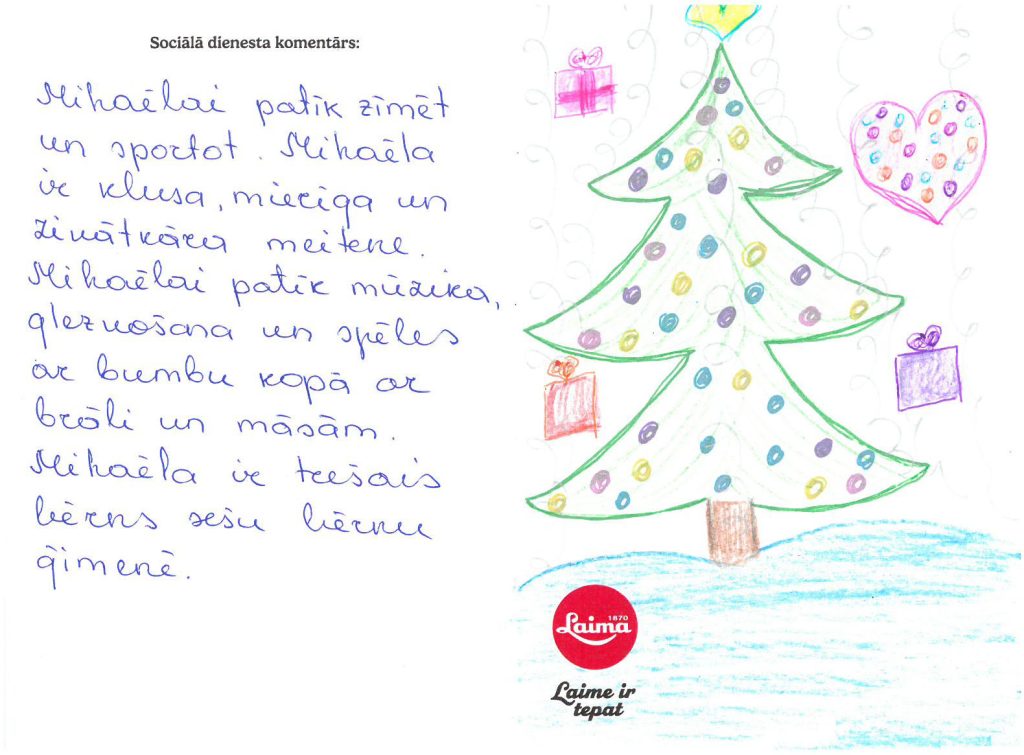 Sociālā dienesta komentārs:
Mihaēlai patīk zīmēt
un sportot. Mihaēla
ir klusa, mierīga un
zinātkāra meitene.
Mihaēlai patīk mūzika,
gleznošana un spēles
ar bumbu kopā ar
brāli un māsām.
Mihaēla ir trešais
bērns sešu bērnu
ģimenē.
1870
Laima
Laime ir
tepat